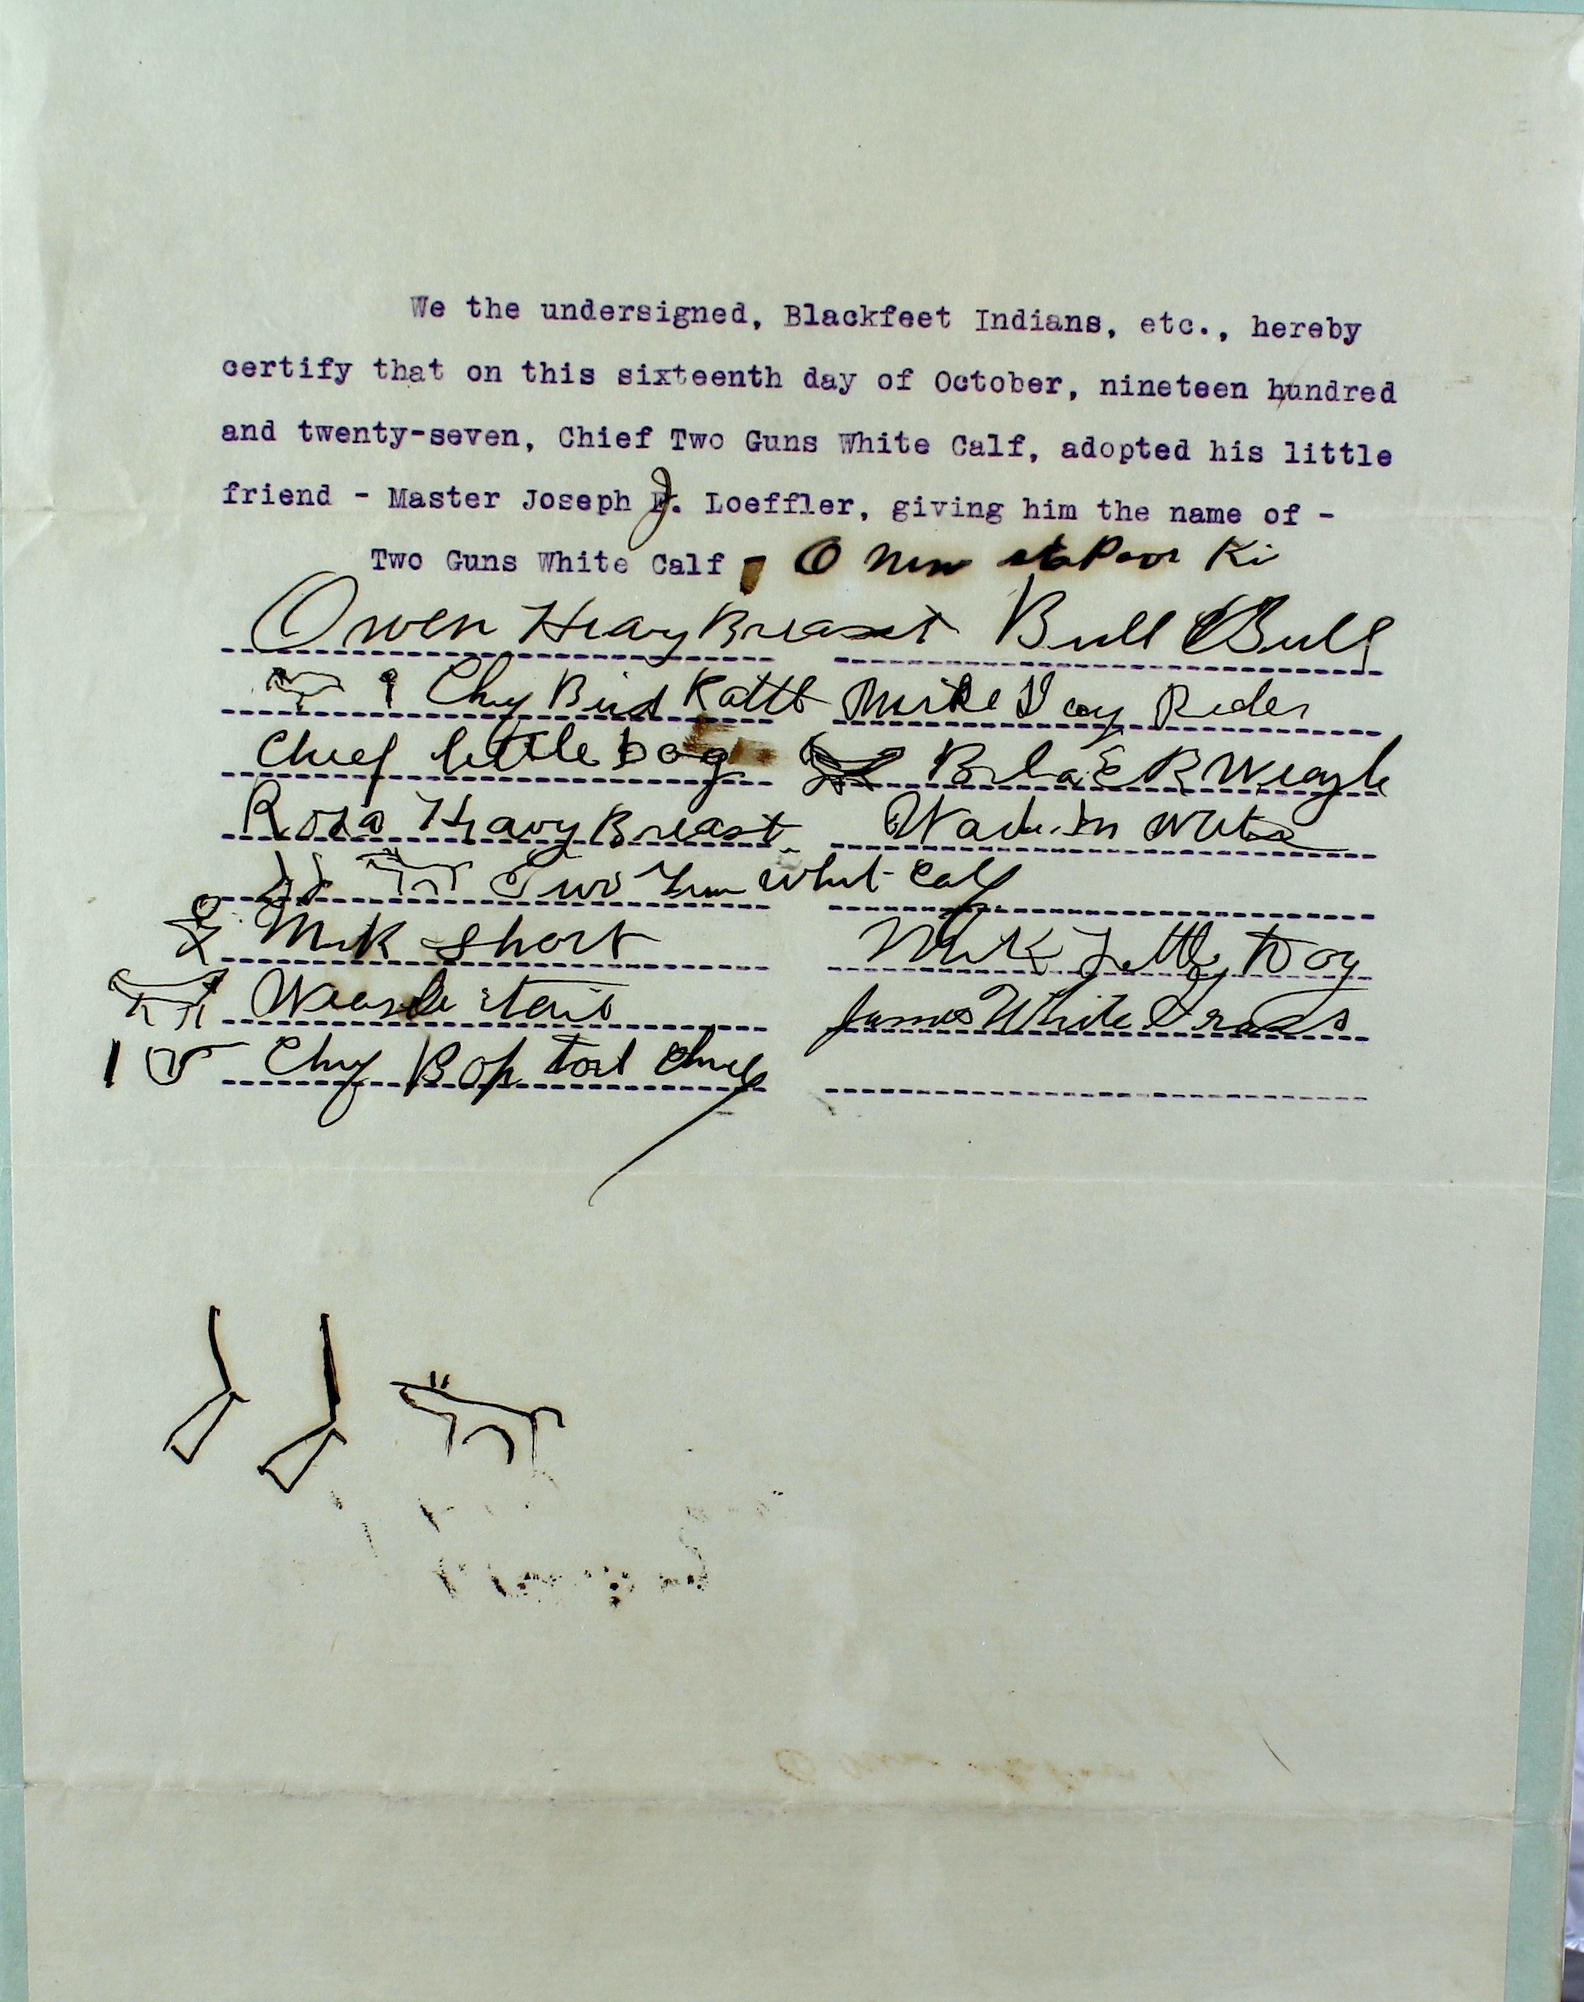 We the undersigned, Blackfeet Indians, etc., hereby
certify that on this sixteenth day of October, nineteen hundred
and twenty-seven, Chief Two Guns White Calf, adopted his little
friend - Master Joseph J. Loeffler, giving him the name of -
Two Guns White Calf O Ki
Owen Heavy Breast Bull Bull
Bird Rattl Mike Day Rider
Chief little dog
Rosa Heavy Breast
Two Gun whit Calf
Mik Short Mik Dog
Weasle tail James White Grass
Bop tail